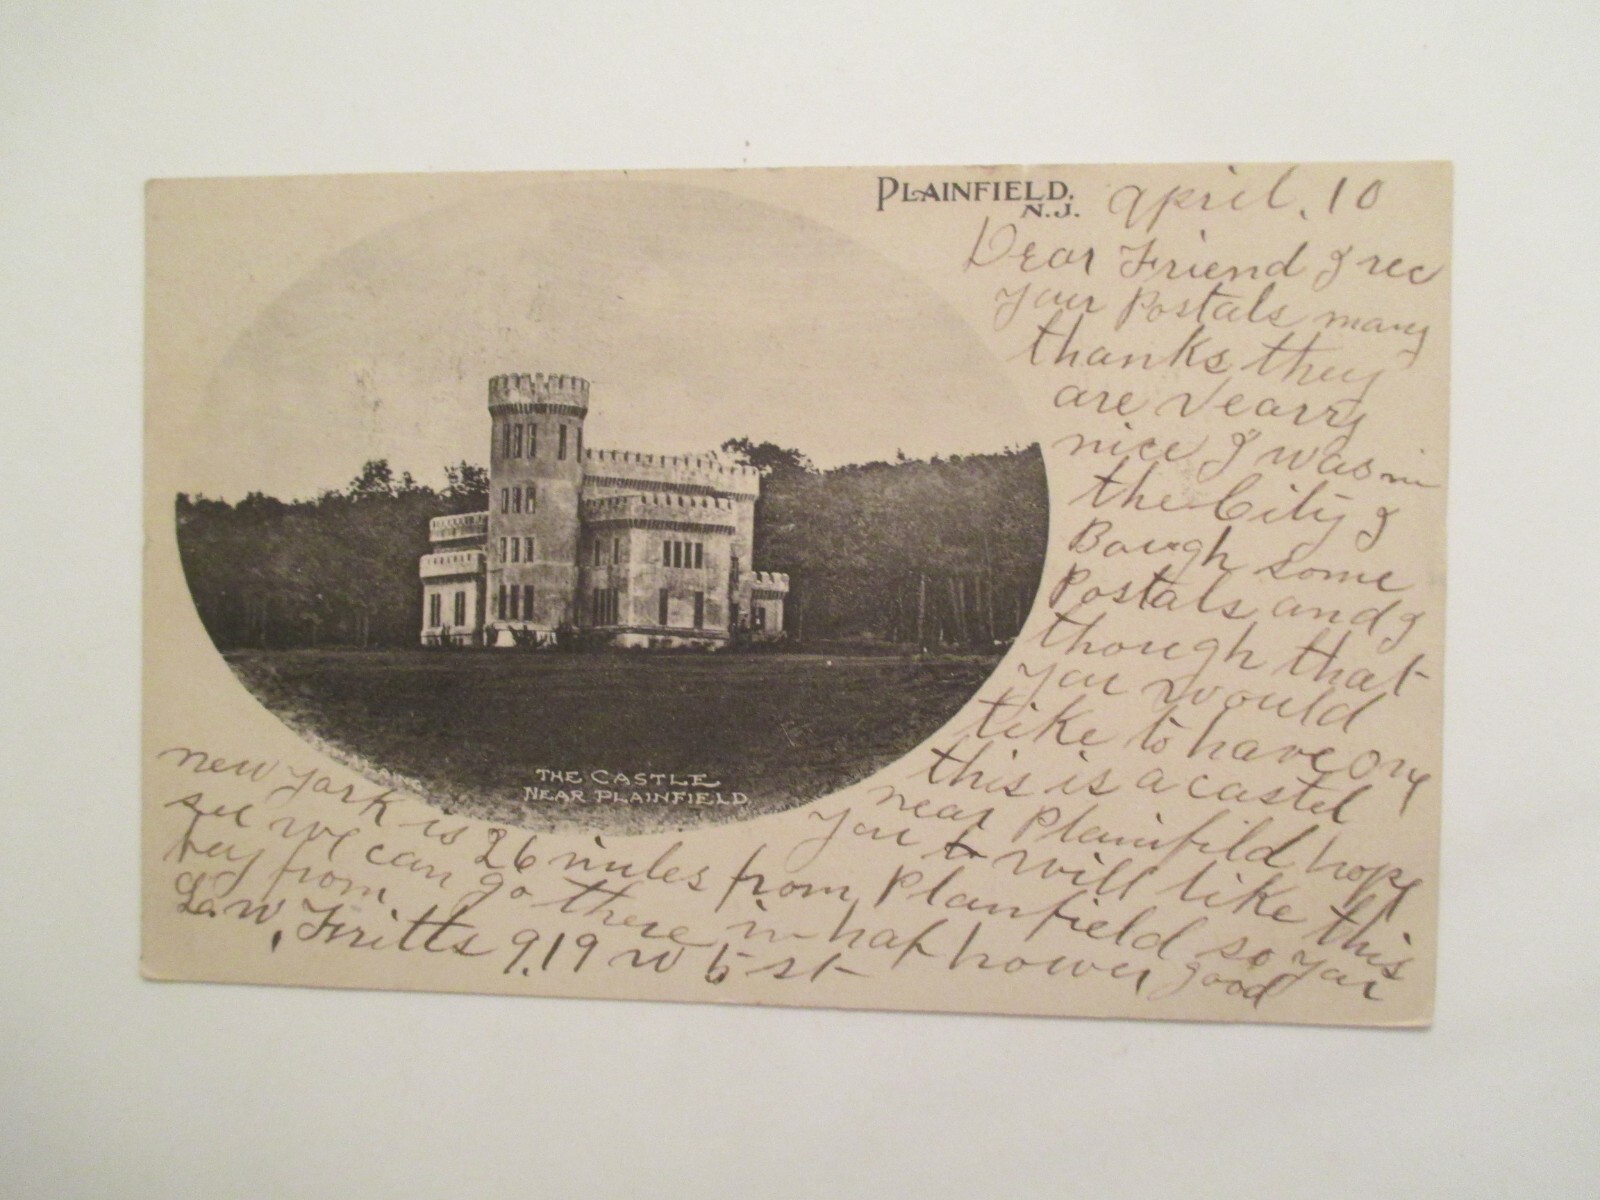 PLAINFIELD.
N.J.
April. 10
Dear Friend I rec
your Postals many
thanks they
are vearry
nice I was in
the City I
Bough some
Postals and I
though that
you would
like to have one
this is a castel
near Plainfild hope
you will like this
new york is 26 miles from Planfield so you
see we can go there in haf hower good
bey from
Fritts 919 W 5 st
THE CASTLE
NEAR PLAINFIELD